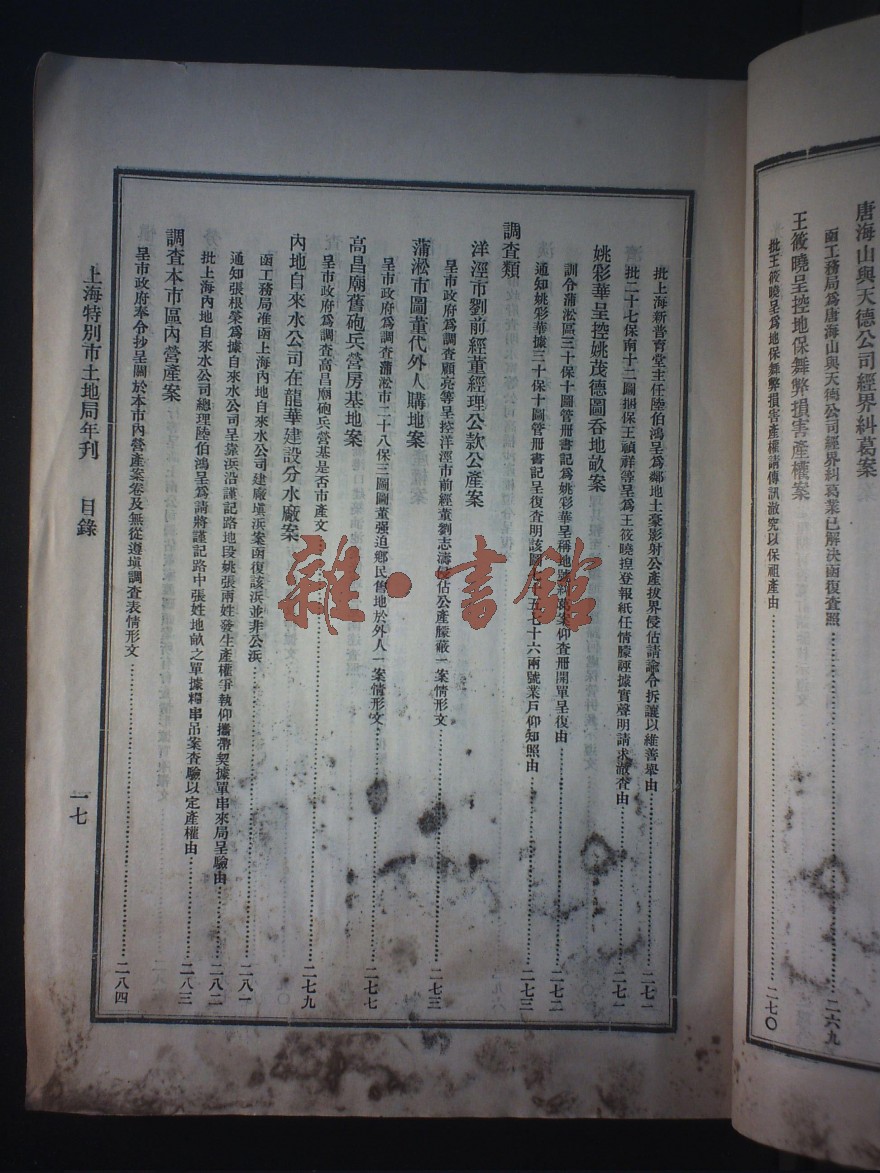 唐海山與天德公司經界糾葛案
函工務局爲唐海山與天德公司經界糾葛業已解決函復查照⋯⋯二六九
王筱曉呈控地保舞弊損害產權案
批王筱曉呈爲地保舞弊損害產權請傳訊澈究以保祖產由⋯⋯二七〇
批上海新普育堂主任陸伯鴻呈爲鄰地土豪影射公產拔界侵佔請諭令拆讓以維善舉由⋯⋯二七一
批二十七保南十二圖捆保王禎祥等呈爲王筱曉揑登報紙任情朦誣據實聲明請求澈查由⋯⋯二七一
姚彩華呈控姚茂德圖吞地畝案
訓令蒲淞區三十保十圖管册書記爲姚彩華呈稱地號糾葛案仰查册開單呈復由⋯⋯二七二
通知姚彩華據三十保十圖管册書記呈復查明該圖七七五七十六兩號業戶仰知照由⋯⋯二七三
調查類
洋涇市劉前經董經理公款公產案
呈市政府爲調查顧亮等呈控洋涇市前經董劉志濤侵佔公產朦蔽一案情形文⋯⋯二七三
蒲淞市圖董代外人購地案
呈市政府爲調查蒲淞市二十八保三圖圖董强迫鄉民售地於外人一案情形文⋯⋯二七七
高昌廟舊砲兵營房基地案
呈市政府爲調查高昌廟砲兵營基是否市產文⋯⋯二七九
內地自來水公司在龍華建設分水廠案
函工務局准函上海內地自來水公司建廠塡浜案函復該浜並非公浜⋯⋯二八一
通知張根肇爲據自來水公司呈靠浜沿謹記路地段姚張兩姓發生產權爭執仰攜帶契據單串來局呈驗由⋯⋯二八二
批上海內地自來水公司總理陸伯鴻呈爲請將謹記路中張姓地畝之單據糧串吊案查驗以定產權由⋯⋯二八三
調查本市區內營產案
呈市政府奉令抄呈關於本市內營產案卷及無從遵塡調查表情形文⋯⋯二八四
上海特別市土地局年刋 目錄
一七
雜·書館